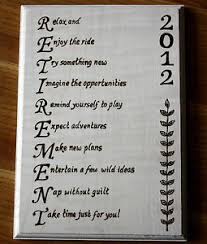 Relax and
Enjoy the ride
Try something new
Imagine the opportunities
Remind yourself to play
Expect adventures
Make new plans
Entertain a few wild ideas
Nap without guilt
Take time just for you!
2012